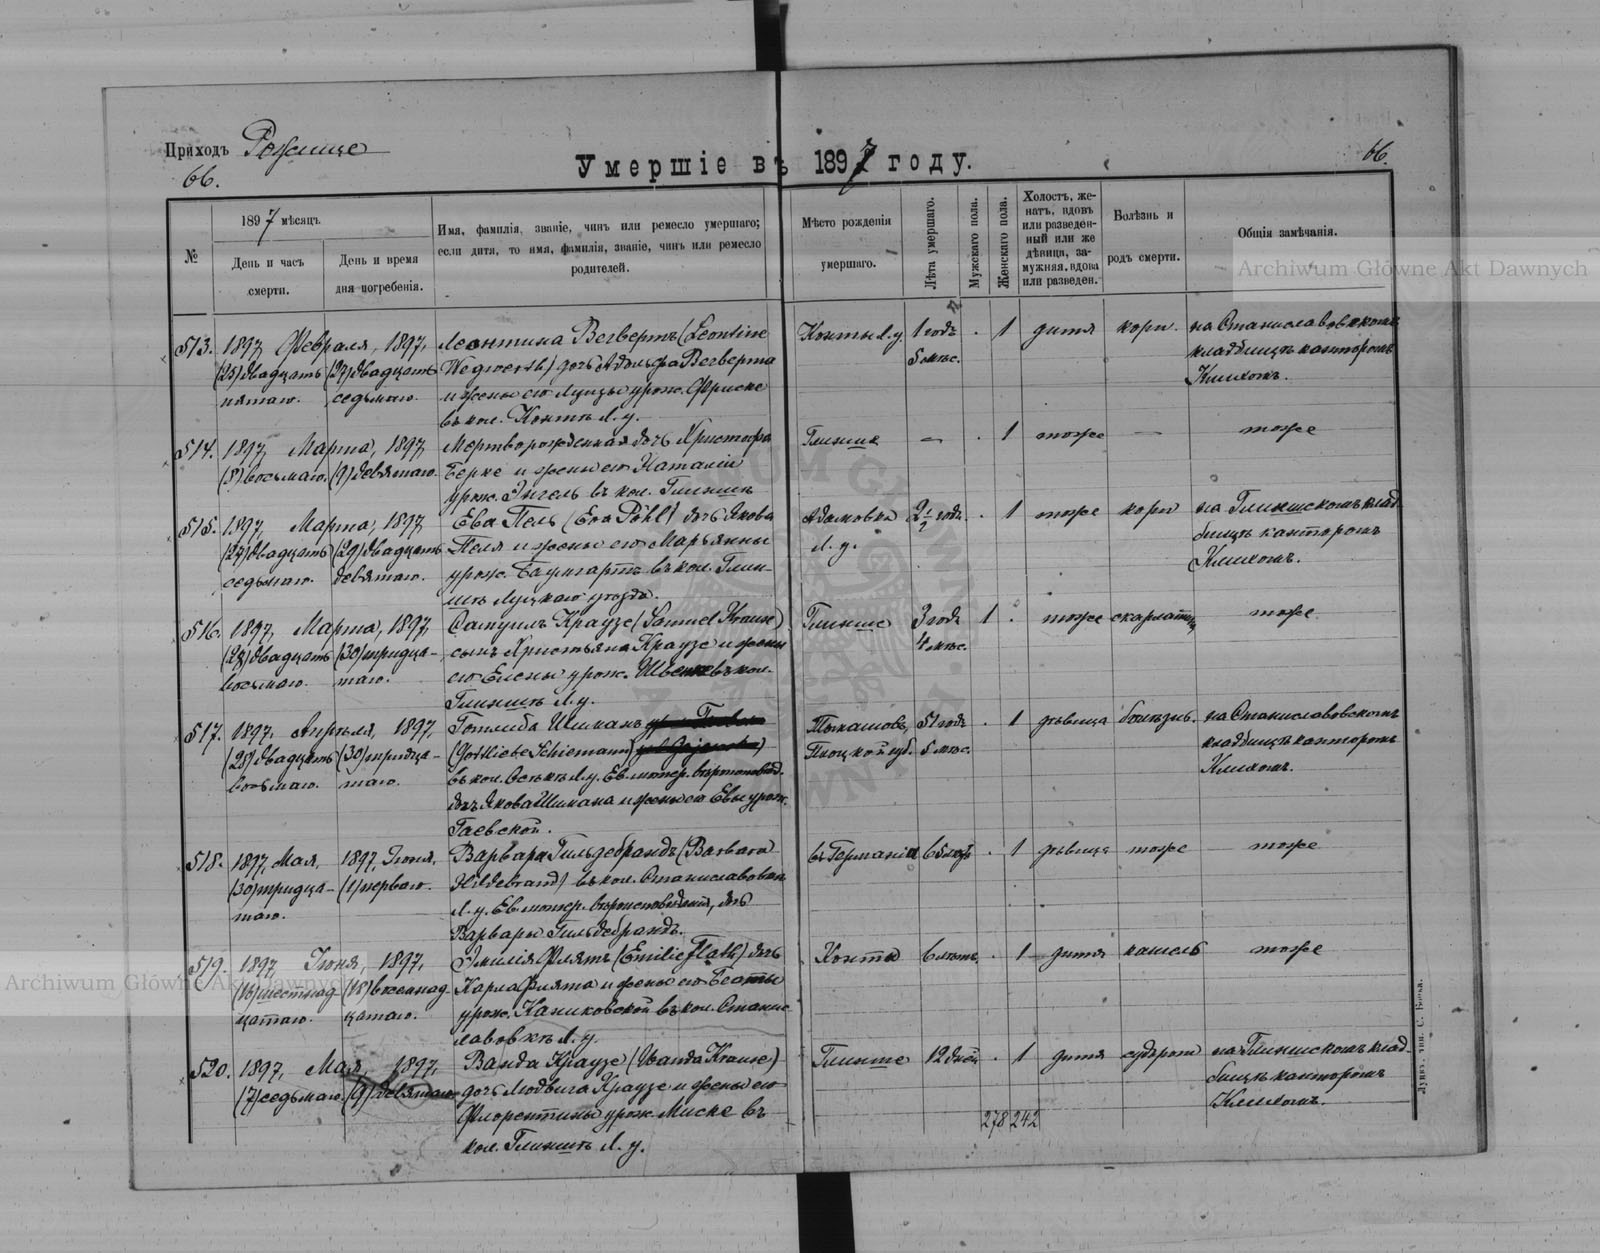 Приходъ Рожище
66.
Умершіе въ 1897 году.
66.
№
1897 мѣсяцъ
День и часъ смерти.
День и время дня погребенія.
Имя, фамилія, званіе, чинъ или ремесло умершаго;
если дитя, то имя, фамилія, званіе, чинъ или ремесло
родителей.
Мѣсто рожденія
умершаго.
Лѣта умершаго.
Мужскаго пола.
Женскаго пола.
Холостъ, же-
натъ, вдовъ
или разведен-
ный или же
дѣвица, за-
мужняя, вдова
или разведен.
Болѣзнь и
родъ смерти.
Общія замѣчанія.
Archiwum Główne Akt Dawnych
513. 1897, Февраля, 1897, Леонтина Вегвертъ (Leontine Конты Л. у. 1 годъ . 1 дитя кори. на Станиславовскомъ
(25) двадцать (27) двадцать Wegwerth) дочь Адольфа Вегверта 5 мѣс. кладбищѣ канторомъ
пятаго. седьмаго. и жены его Луизы урож. Фриске
въ кол. Контъ Л. у.
514. 1897, Марта, 1897, Мертворожденная дочь Христофа Глинище — . 1 тоже — тоже
(8) восьмаго. (9) девятаго. Берке и жены его Наталіи
урож. Энгель въ кол. Глинищъ
515. 1897, Марта, 1897, Ева Пель (Eva Pöhl) дочь Якова Адамовка 2 1/2 года . 1 тоже кори на Глинискомъ клад-
(27) двадцать (29) двадцать Пеля и жены его Марьянны Л. у. бищѣ канторомъ
седьмаго. девятаго. урож. Баумгартъ въ кол. Глин-
ищъ Луцкаго уѣзда.
516. 1897, Марта, 1897, Самуилъ Краузе (Samuel Krause) Глинище 3 года 1 . тоже скарлатина тоже
(28) двадцать (30) тридца- сынъ Христьяна Краузе и жены 4 мѣс.
восьмаго. таго. его Елены урож. въ кол.
Глинищъ Л. у.
517. 1897, Апрѣля, 1897, Готлиба Шиманъ 51 годъ . 1 дѣвица болѣзнь. на Станиславовскомъ
(28) двадцать (30) тридца- (Gottliebe Schiemann) Плоцкой губ. 5 мѣс. кладбищѣ канторомъ
восьмаго. таго. въ кол. Л. у. Ев. лютер. вѣроисповѣд.
дочь Якова Шимана и жены его Евы урож.
Гаевской.
518. 1897, Мая, 1897, Іюня, Варвара Гильдебрандъ (Barbara въ Германіи . 1 дѣвица тоже тоже
(30) тридца- (1) перваго. Hildebrand) въ кол. Станиславовкѣ
таго. Л. у. Ев. лютер. вѣроисповѣданія, дочь
Варвары Гильдебрандъ.
519. 1897, Іюня, 1897, Эмилія Флятъ (Emilie Flath) дочь Конты 6 лѣтъ. . 1 дитя кашель тоже
(16) шестнад- (18) восемнад- Карла Флята и жены его Беаты
цатаго. цатаго. урож. Каниковской въ кол. Станис-
лавовкѣ Л. у.
Archiwum Główne Akt Dawnych
520. 1897, Мая, 1897, Ванда Краузе (Wanda Krause) Глинище 12 дней . 1 дитя судороги на Глинискомъ клад-
(7) седьмаго. (9) девятаго дочь Людвига Краузе и жены его бищѣ канторомъ
Флорентины урож. Миске въ
кол. Глинищъ Л. у.
278 242
Луцкъ, тип. С. Бокса.